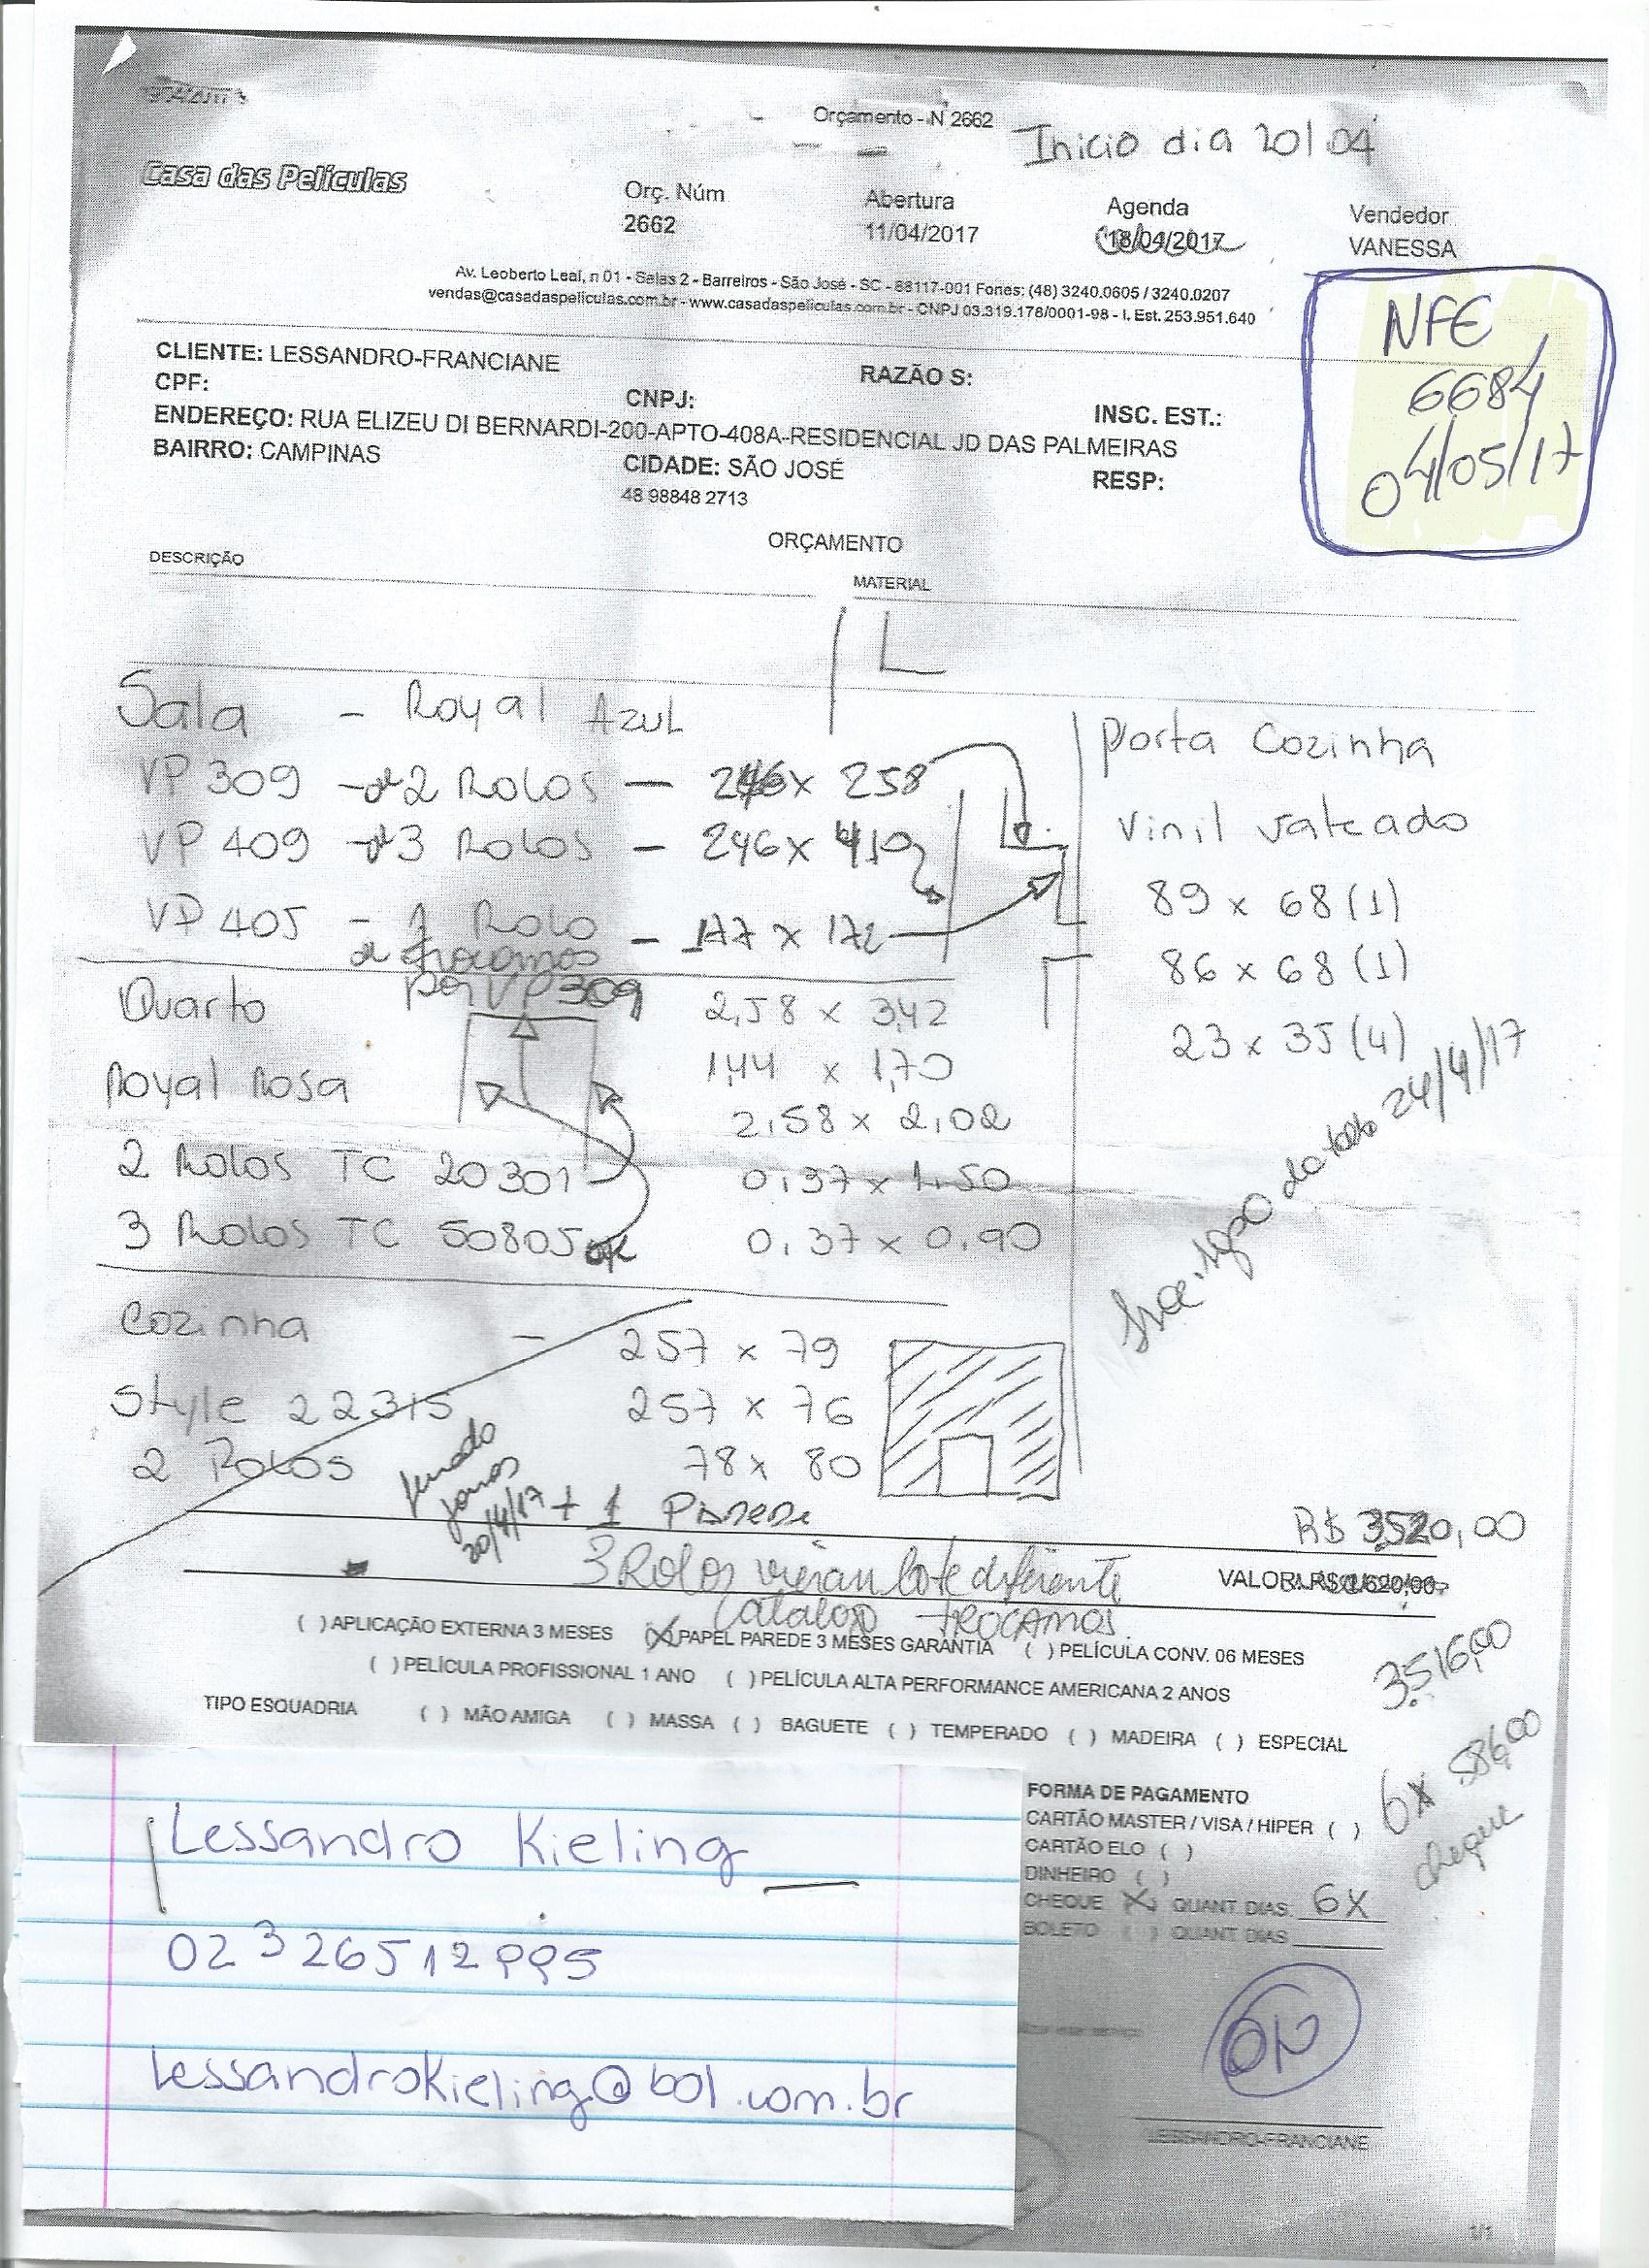 Orçamento - N 2662
Inicio dia 20/04
Casa das Películas
Orç. Núm
2662
Abertura
11/04/2017
Agenda
18/04/2017
Vendedor
VANESSA
Av. Leoberto Leal, n 01 - Salas 2 - Barreiros - São José - SC - 88117-001 Fones: (48) 3240.0605 / 3240.0207
vendas@casadaspeliculas.com.br - www.casadaspeliculas.com.br - CNPJ 03.319.178/0001-98 - I. Est. 253.951.640
NFE
6684
04/05/17
CLIENTE: LESSANDRO-FRANCIANE
RAZÃO S:
CPF:
CNPJ:
INSC. EST.:
ENDEREÇO: RUA ELIZEU DI BERNARDI-200-APTO-408A-RESIDENCIAL JD DAS PALMEIRAS
BAIRRO: CAMPINAS
CIDADE: SÃO JOSÉ
RESP:
48 98848 2713
ORÇAMENTO
DESCRIÇÃO
MATERIAL
Sala - Royal Azul
VP 309 - 2 Rolos - 246 x 258
VP 409 - 3 Rolos - 246 x 419
VP 405 - 1 Rolo - 177 x 172
trocamos
por VP 309
Porta Cozinha
Vinil Jateado
89 x 68 (1)
86 x 68 (1)
23 x 35 (4)
Quarto
Royal Rosa
2,58 x 3,42
1,44 x 1,70
2,58 x 2,02
2 Rolos TC 20301
0,37 x 1,50
3 Rolos TC 50805
0,37 x 0,90
24/4/17
Cozinha - 257 x 79
Style 22315 257 x 76
2 Rolos 78 x 80
20/4/17
+ 1 Parede
R$ 3520,00
3 Rolos vieram lote diferente
catalogo trocamos
VALOR: R$
( ) APLICAÇÃO EXTERNA 3 MESES (X) PAPEL PAREDE 3 MESES GARANTIA ( ) PELÍCULA CONV. 06 MESES
( ) PELÍCULA PROFISSIONAL 1 ANO ( ) PELÍCULA ALTA PERFORMANCE AMERICANA 2 ANOS
3.516,00
TIPO ESQUADRIA ( ) MÃO AMIGA ( ) MASSA ( ) BAGUETE ( ) TEMPERADO ( ) MADEIRA ( ) ESPECIAL
6x 586,00
cheque
FORMA DE PAGAMENTO
CARTÃO MASTER / VISA / HIPER ( )
CARTÃO ELO ( )
DINHEIRO ( )
CHEQUE (X) QUANT. DIAS: 6X
BOLETO ( ) QUANT DIAS
Lessandro Kieling
02326512995
lessandrokieling@bol.com.br
LESSANDRO-FRANCIANE
1/1